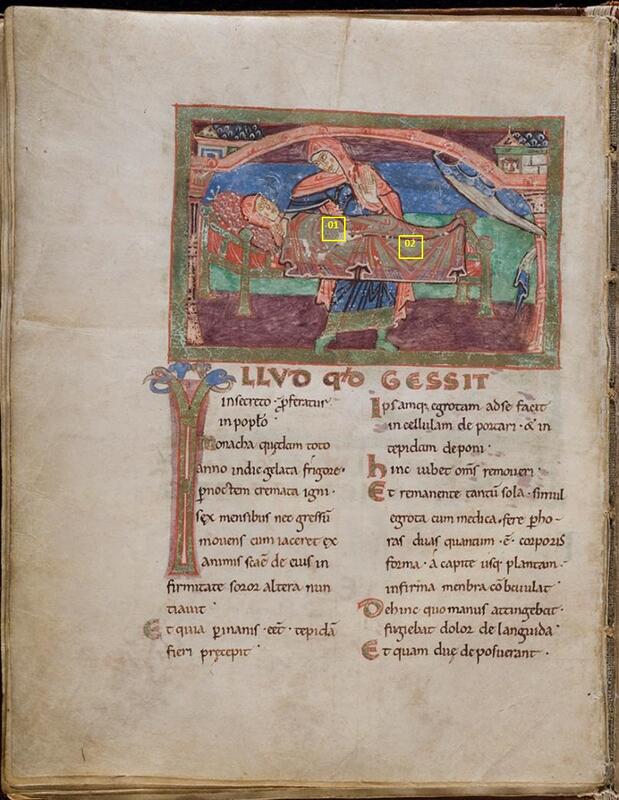 ILLVD qđ GESSIT
in secreto · p̄feratur
in poplo
Monacha quędam toto
anno indic gelata frigore ·
p̄noctem cremata igni ·
sex mensibus nec gressū
mouens cum iaceret ex
animis scāē de eius in
firmitate soror altera nun
tiauit
Et quia p̄ inanis · eēt · tepidā
fieri pręcepit
Ipsamq; egrotam adse facit
in cellulam de portari · & in
tepidam deponi ·
hinc iubet om̄s remoueri ·
Et remanente tantū sola · simul
egrota cum medica · fere p̄ ho-
ras duas quantum · ē · corporis
forma · á capite usq; plantam ·
infirma menbra cōtrectat
Dehinc quo manus attingebat ·
fugiebat dolor de languida
Et quam duę deposuerant ·
01
02